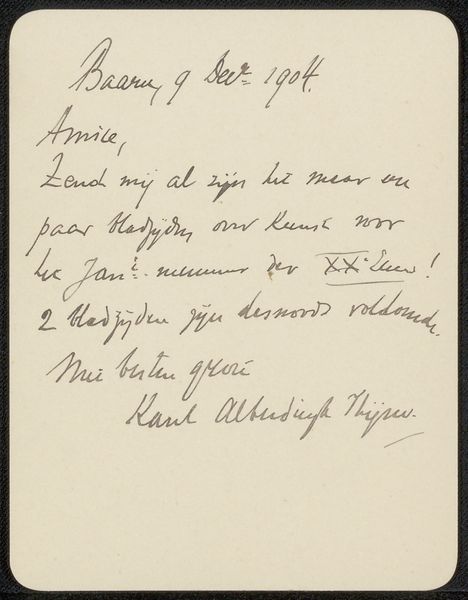 Baarn, 9 Decr 1904.
Amice,
Zend mij al zijn het maar een
paar bladzijden over Kunst voor
het Jan.i nummer der XXe Eeuw!
2 bladzijden zijn desnoods voldoende.
Met besten groet
Karel Alberdingk Thijm.